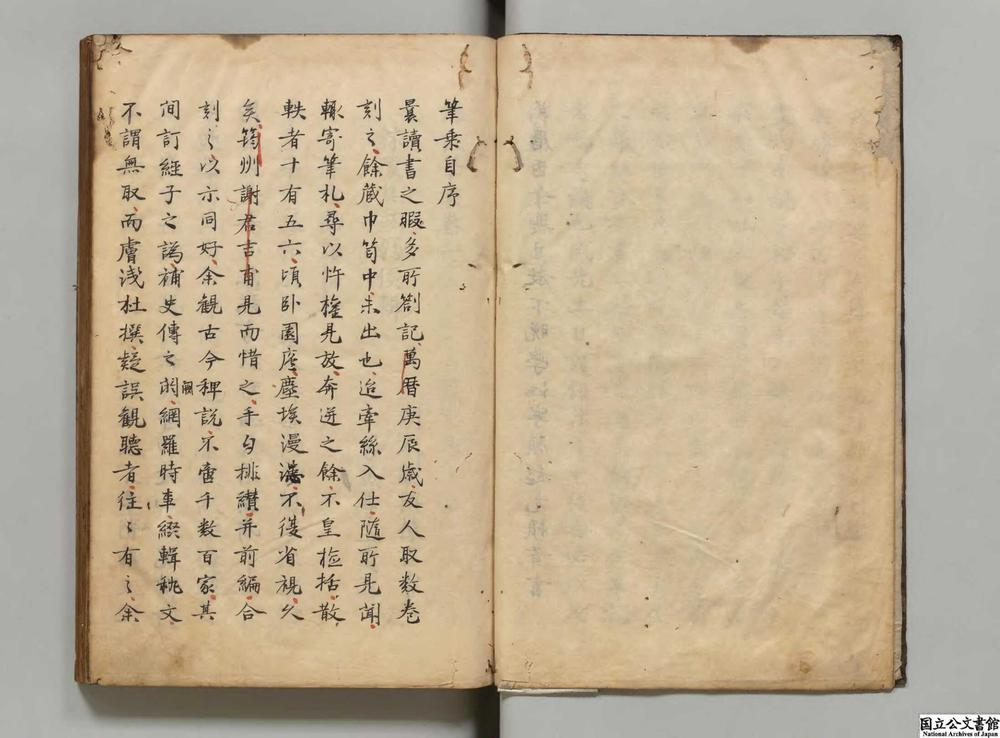 筆乗自序
曩讀書之暇多所劄記萬暦庚辰歳友人取數巻
刻之餘蔵巾笥中未出也迨牽絲入仕隨所見聞
輙寄筆札尋以忤權見放奔迸之餘不皇檢括散
軼者十有五六頃卧園廬塵埃漫漶不復省視久
矣筠州謝君吉甫見而惜之手自排纉并前編合
刻之以示同好余觀古今稗説不啻千数百家其
間訂經子之譌補史傳之闕網羅時事綴輯秇文
不謂無取而膚浅杜撰疑誤観聴者往〻有之余
国立公文書館
National Archives of Japan